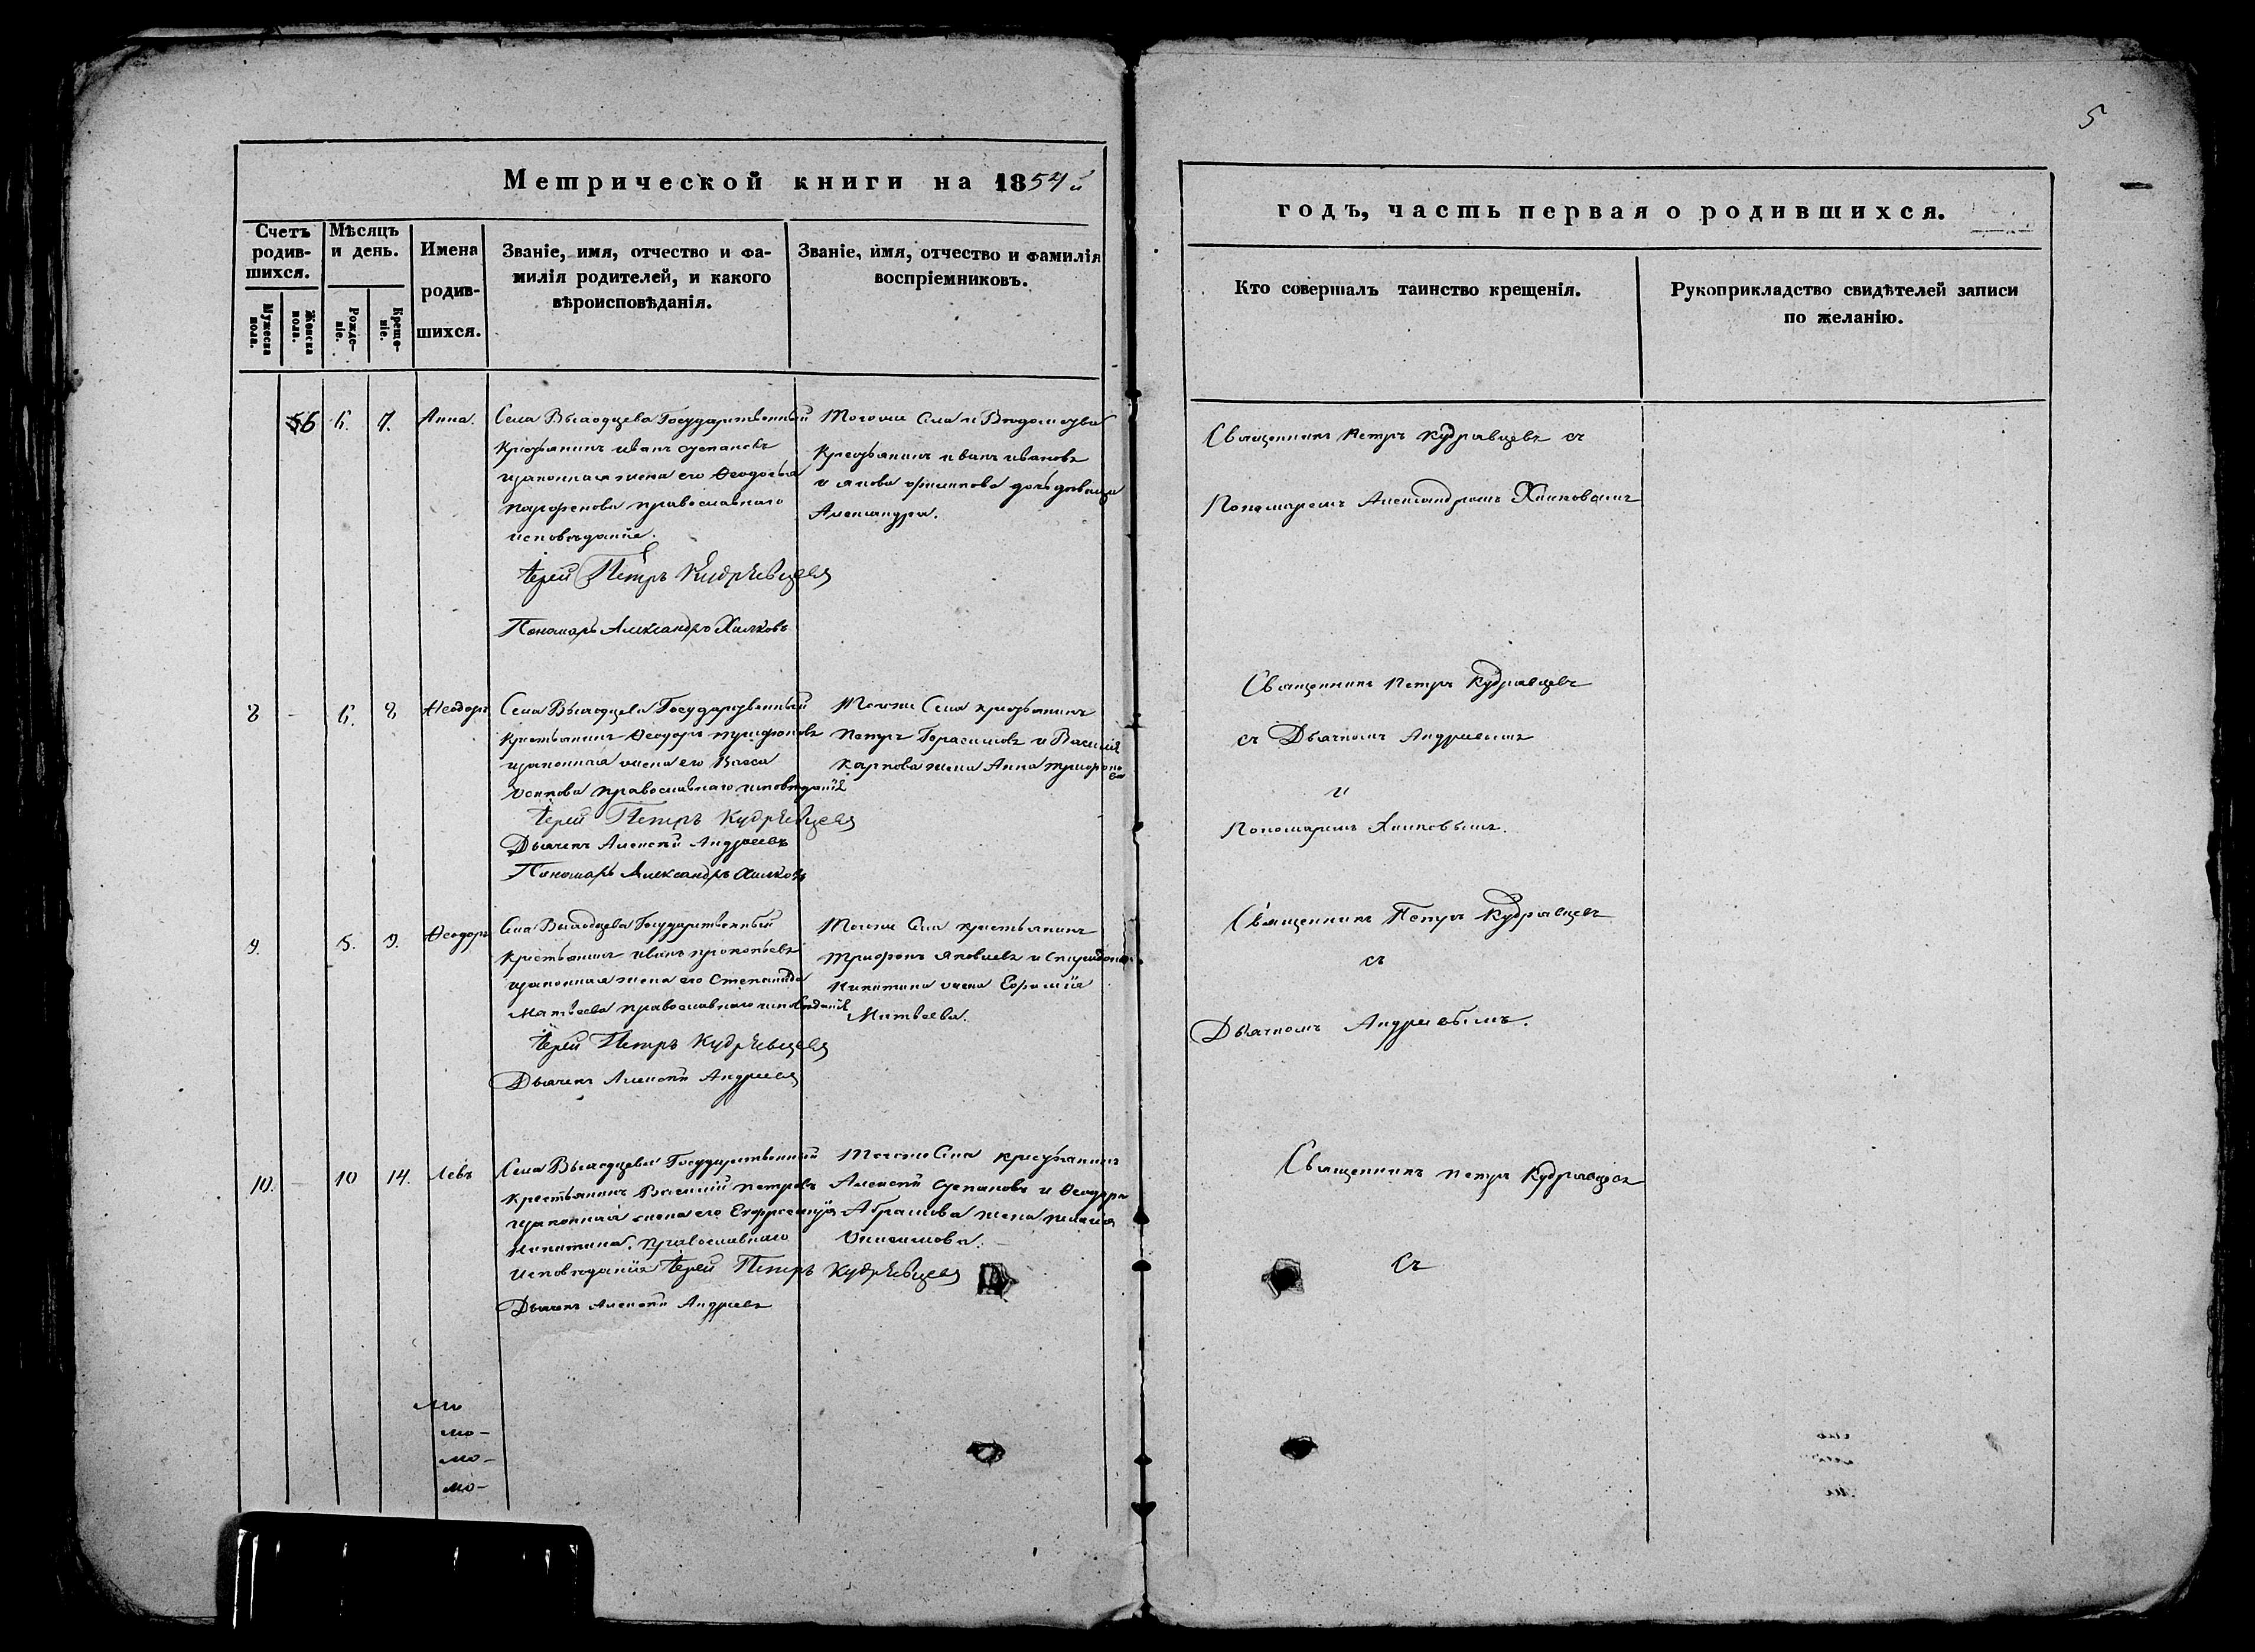 5
Метрической книги на 1854й
годъ, часть первая о родившихся.
Счетъ родив-
шихся.
Мѣсяцъ
и день.
Мужеска
пола.
Женска
пола.
Рожде-
ніе.
Креще-
ніе.
Имена
родив-
шихся.
Званіе, имя, отчество и фа-
милія родителей, и какого
вѣроисповѣданія.
Званіе, имя, отчество и фамилія
воспріемниковъ.
Кто совершалъ таинство крещенія.
Рукоприкладство свидѣтелей записи
по желанію.
6 7. Анна.
Села Государственный
Крестьянинъ иванъ степановъ
изаконная жена его Ѳеодосья
православнаго
исповѣданіе.
Іерей Петръ Кудрявцевъ
Пономарь Александръ Хилковъ
Тогоже Села
Крестьянинъ иванъ ивановъ
и якова дочь девица
Александра.
Священникъ Петръ Кудрявцевъ съ
Пономаремъ Александромъ Хилковымъ
8 - 8 Ѳеодоръ
Села Государственный
Крестьянинъ Ѳеодоръ
изаконная жена его Васса
православнаго исповѣданія
Іерей Петръ Кудрявцевъ
Дьячекъ Алексѣй Андреевъ
Пономарь Александръ Хилковъ
Тогоже Села крестьянинъ
Петръ Герасимовъ и Василія
Карпова жена Анна
Священникъ Петръ Кудрявцевъ
съ Дьячкомъ Андреевымъ
и
Пономаремъ Хилковымъ.
9. 5. 9. Ѳеодоръ
Села Государственный
Крестьянинъ иванъ прокопьевъ
изаконная жена его Степанида
Матвеева православнаго исповѣданія
Іерей Петръ Кудрявцевъ
Дьячекъ Алексѣй Андреевъ
Тогоже Села крестьянинъ
Трифонъ Яковлевъ и
Никитина жена
Матвеева.
Священникъ Петръ Кудрявцевъ
съ
Дьячкомъ Андреевымъ.
10. - 10 14. Левъ
Села Государственный
Крестьянинъ Василій петровъ
изаконная жена его
Никитина. Православнаго
Исповѣданія Іерей Петръ Кудрявцевъ
Дьячекъ Алексѣй Андреевъ
Тогоже Села крестьянинъ
Алексѣй Степановъ и Ѳеодора
Абрамова жена
Священникъ Петръ Кудрявцевъ
съ
мо-
мо-
мо-